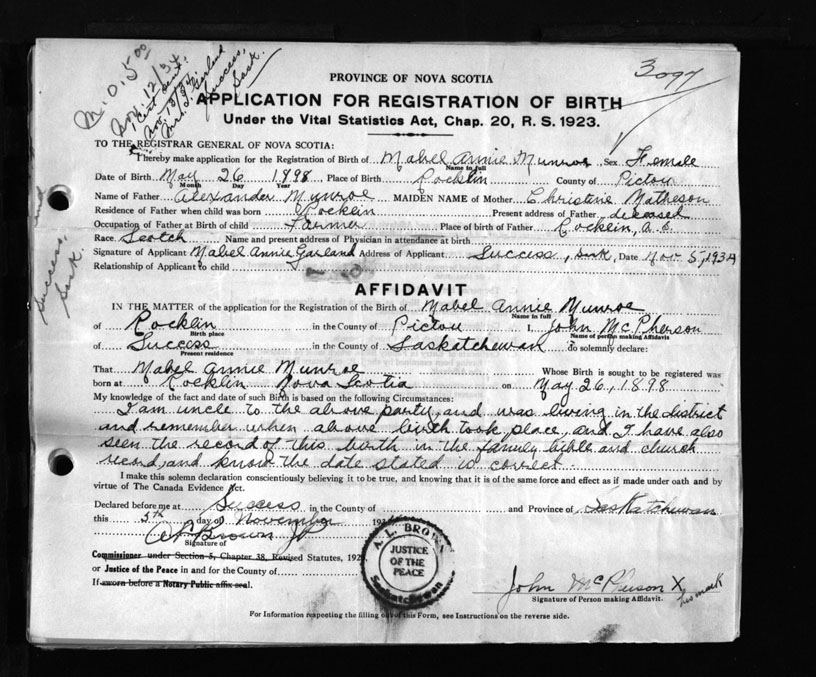 M.O. 5.00
Nov. 12/34
Cert sent.
Nov. 13/34
Mrs. T. Garland
Success,
Sask.
3097
PROVINCE OF NOVA SCOTIA
APPLICATION FOR REGISTRATION OF BIRTH
Under the Vital Statistics Act, Chap. 20, R. S. 1923.
TO THE REGISTRAR GENERAL OF NOVA SCOTIA:
I hereby make application for the Registration of Birth of Mabel Annie Munroe Sex Female
Name in full
Date of Birth May 26 1898. Place of Birth Rocklin County of Pictou
Month Day Year
Name of Father Alexander Munroe MAIDEN NAME of Mother Christine Matheson
Residence of Father when child was born Rocklin Present address of Father deceased
Occupation of Father at Birth of child Farmer Place of birth of Father Rocklin, N.S.
Race Scotch Name and present address of Physician in attendance at birth
Signature of Applicant Mabel Annie Garland Address of Applicant Success, Sask, Date Nov 5, 1934
Relationship of Applicant to child
Success,
Sask.
AFFIDAVIT
IN THE MATTER of the application for the Registration of the Birth of Mabel Annie Munroe
Name in full
of Rocklin in the County of Pictou I, John McPherson
Birth place Name of person making Affidavit
of Success in the County of Saskatchewan do solemnly declare:
Present residence
That Mabel Annie Munroe Whose Birth is sought to be registered was
born at Rocklin Nova Scotia on May 26, 1898.
My knowledge of the fact and date of such Birth is based on the following Circumstances:
I am uncle to the above party, and was living in the district
and remember when above birth took place, and I have also
seen the record of this birth in the family bible and church
record, and know the date stated is correct.
I make this solemn declaration conscientiously believing it to be true, and knowing that it is of the same force and effect as if made under oath and by
virtue of The Canada Evidence Act.
Declared before me at Success in the County of and Province of Saskatchewan
this 5th day of November 193
A L Brown JP
Signature of
Commissioner under Section 5, Chapter 38, Revised Statutes, 192
or Justice of the Peace in and for the County of
If sworn before a Notary Public affix seal.
A. L. BROWN
JUSTICE
OF THE
PEACE
Saskatchewan
John McPherson X
his mark
Signature of Person making Affidavit.
For Information respecting the filling out of this Form, see Instructions on the reverse side.